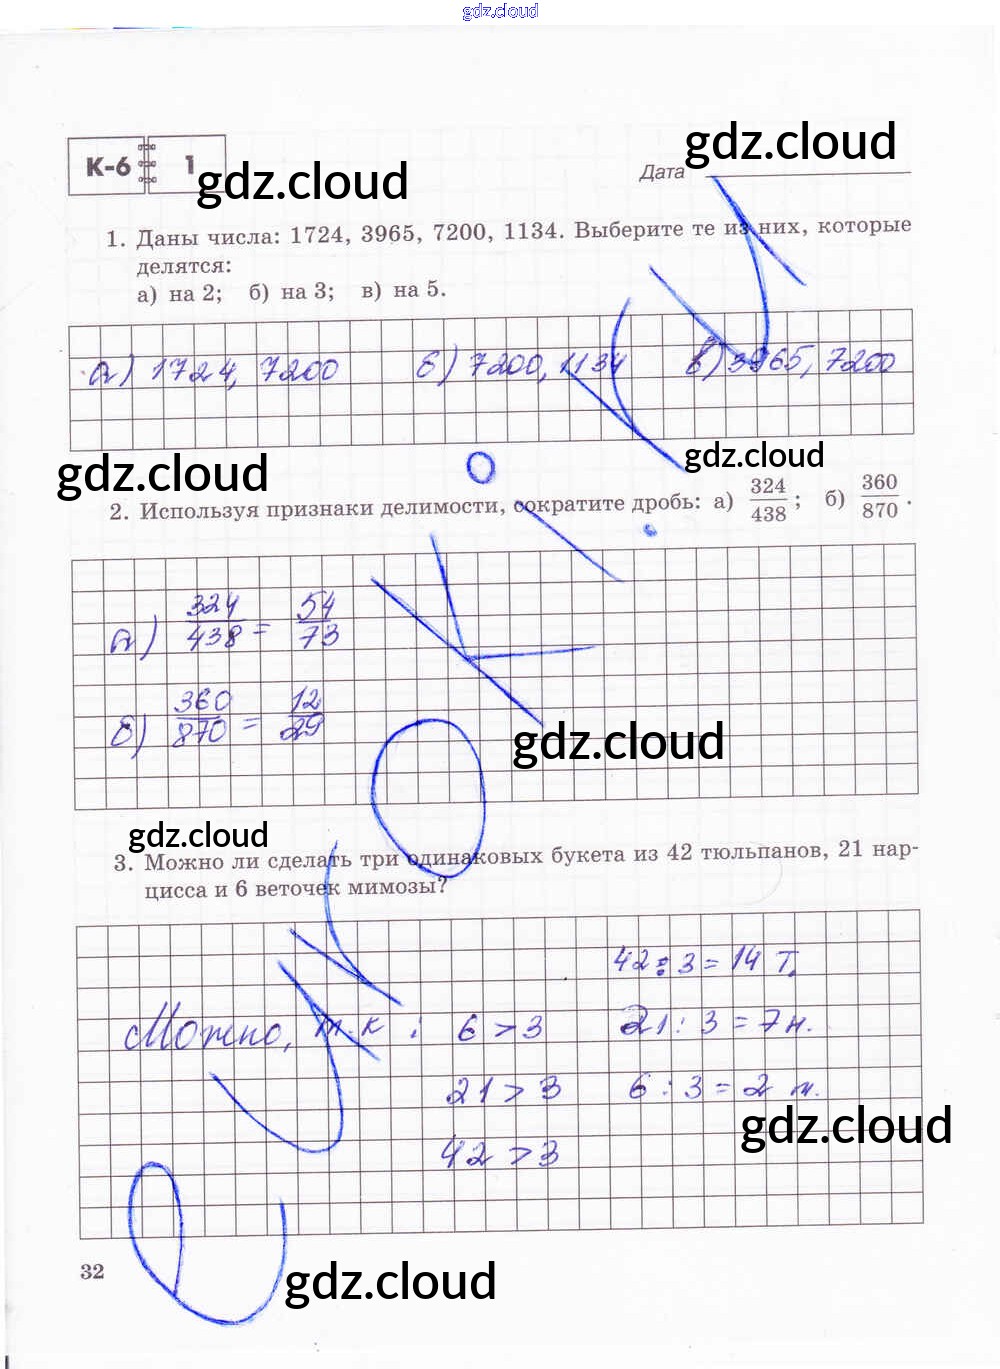 gdz.cloud
gdz.cloud
К-6 1
gdz.cloud
Дата
1. Даны числа: 1724, 3965, 7200, 1134. Выберите те из них, которые
делятся:
а) на 2; б) на 3; в) на 5.
а) 1724, 7200 б) 7200, 1134 в) 3965, 7200
gdz.cloud
gdz.cloud
2. Используя признаки делимости, сократите дробь: а) 324/438; б) 360/870.
а) 324/438 = 54/73
б) 360/870 = 12/29
gdz.cloud
gdz.cloud
3. Можно ли сделать три одинаковых букета из 42 тюльпанов, 21 нар-
цисса и 6 веточек мимозы?
42 : 3 = 14 т.
Можно, т.к : 6 > 3 21 : 3 = 7 н.
21 > 3 6 : 3 = 2 м.
42 > 3
gdz.cloud
32
gdz.cloud